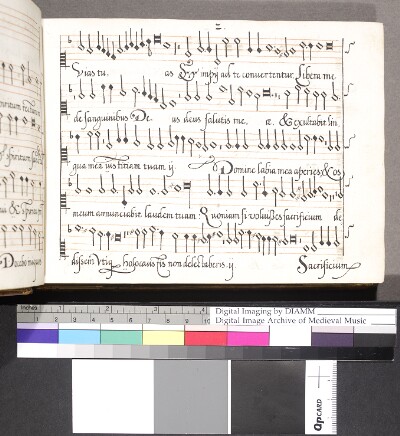 vias tu. as & impij ad te convertentur. Libera me
de sanguinibus De us deus salutis me. æ. & exultabit lin
gua mea iustitiam tuam ij Domine labia mea aperies, & os
meum annunciabit laudem tuam: Quoniam si voluisses sacrificium de
dissem Utiq holocaustis non delectaberis. ij Sacrificium
Docebo iniquos
inches 1 2 3 4
Digital Imaging by DIAMM
Digital Image Archive of Medieval Music
1 2 3 4 5 6 7 8 9 10
QPCARD